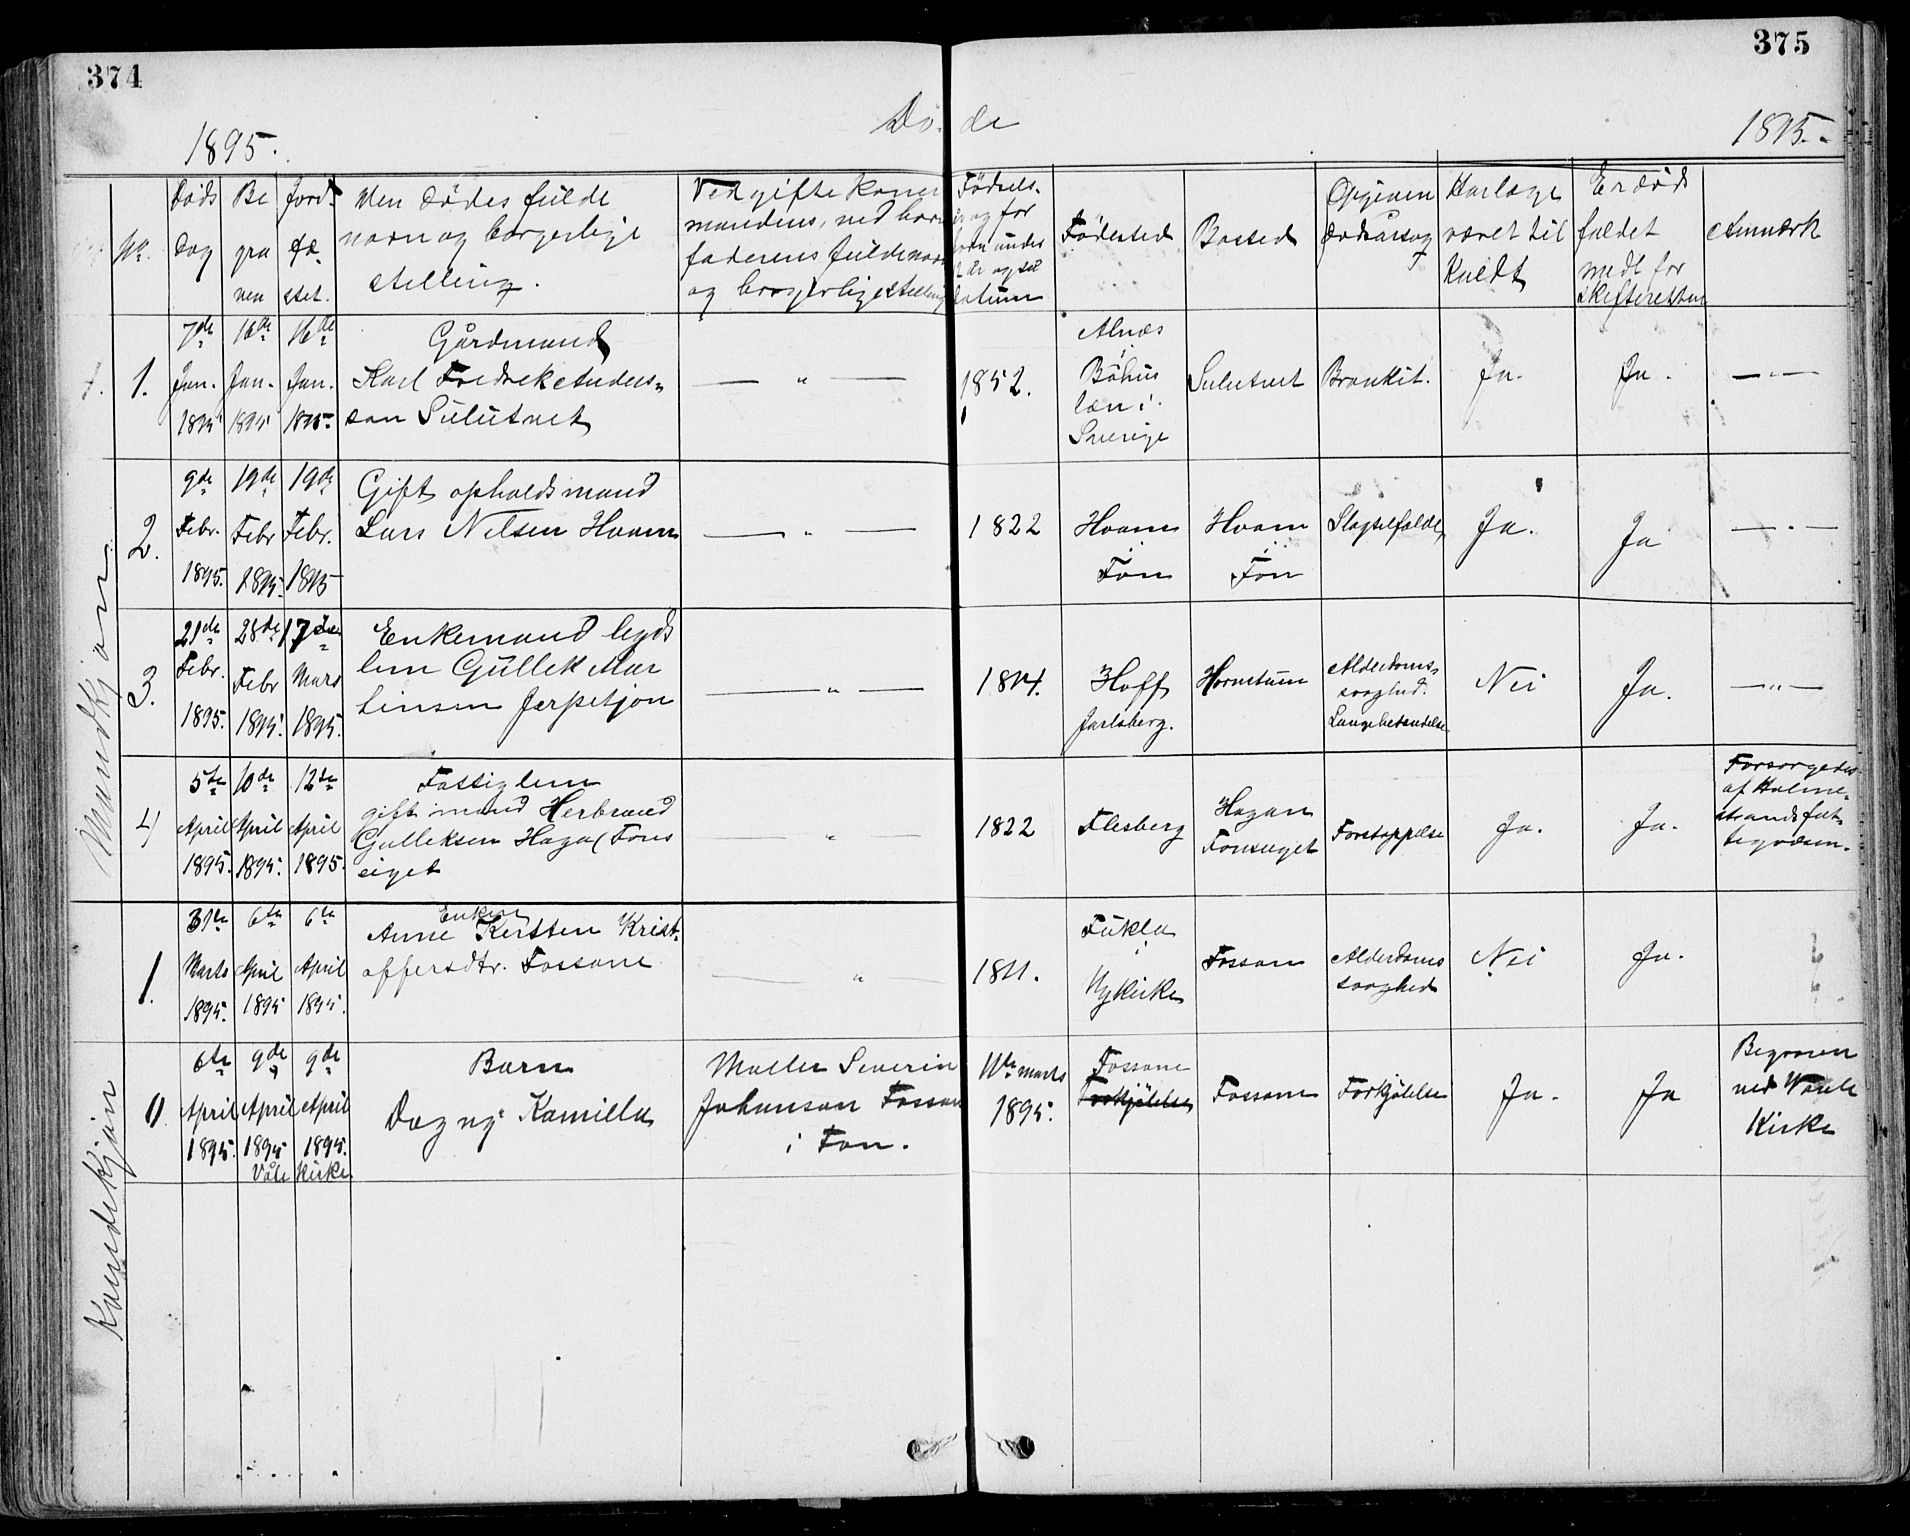 374
375
Dø de
1895.
1895.
No.
Døds Dag
Be gra ven
Jord fæ stet.
Den Dødes fulde
navn og borgerlige
stilling.
Ved gifte Koner
mandens, ved børn
faderens fulde navn
og borgerlige stilling
Fødested
Bosted
Opgiven
dødsårsag
Har læge
været til
kaldt
Er død
faldet
meldt for
skifteretten
Anmærk
Mandkjøn
1.
7de Jan. 1895
16de Jan. 1895
16de Jan. 1895
Gårdmand
Karl Fredrek Anders-
son Sulutvet
— " —
1852.
Alnæs
i
Bøhus
læn i
Sverige
Sulutvet
Bronkit.
Ja.
Ja.
— " —
2.
9de Febr. 1895.
19de Febr 1895.
19de Febr. 1895
Gift opholdsmand
Lars Nilsen Hvam
— " —
1822
Hvam
i
Fon
Hvam
i
Fon
Slagtilfælde
Ja.
Ja
— " —
3.
21de Febr. 1895.
28de Febr 1895.
17de Mars 1895.
Enkemand legds
lem Gullek Mar
tinsen Jerpetjøn
— " —
1814.
Hoff
Jarlsberg.
Hornstuen
Alderdoms-
svaghed.
Lungebetændelse
Nei
Ja.
— " —
4
5te April 1895.
10de April 1895.
12te April 1895.
Fattiglem
gift mand Herbrand
Gulleksen Haga(Fons
eiget
— " —
1822
Flesberg
Hagan
Fonseiget
Forstoppelse
Ja.
Ja.
Forsørgedes
af Holme-
strands fat-
tigvæsen.
Kvindekjøn
1.
31te Marts 1895.
6te April 1895
6te April 1895.
Enken
Anne Kirsten Krist-
offersdtr. Fossane
— " —
1811.
Fukla
i
Nykirke
Fossan
Alderdoms
svaghed
Nei
Ja.
0
6te April 1895.
9de April 1895
9de April 1895.
Våle Kirke
Barn
Dagny Kamilla
Møller Severin
Johanson Fossan
i Fon.
11te marts
1895.
Fossane
Forkjølelse
Fossane
Forkjølelse
Ja.
Ja
Begraven
ved Vaale
Kirke